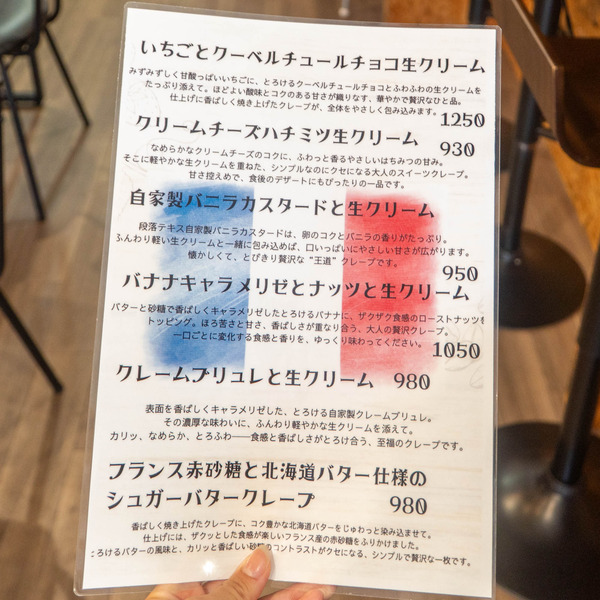 いちごとクーベルチュールチョコ生クリーム
みずみずしく甘酸っぱいいちごに、とろけるクーベルチュールチョコとふわふわの生クリームを
たっぷり添えて。ほどよい酸味とコクのある甘さが織りなす、華やかで贅沢なひと品。
仕上げに香ばしく焼き上げたクレープが、全体をやさしく包み込みます。
1250
クリームチーズハチミツ生クリーム 930
なめらかなクリームチーズのコクに、ふわっと香るやさしいはちみつの甘み。
そこに軽やかな生クリームを重ねた、シンプルなのにクセになる大人のスイーツクレープ。
甘さ控えめで、食後のデザートにもぴったりの一品です。
自家製バニラカスタードと生クリーム
段落テキス自家製バニラカスタードは、卵のコクとバニラの香りがたっぷり。
ふんわり軽い生クリームと一緒に包み込めば、口いっぱいにやさしい甘さが広がります。
懐かしくて、とびきり贅沢な“王道”クレープです。
950
バナナキャラメリゼとナッツと生クリーム
バターと砂糖で香ばしくキャラメリゼしたとろけるバナナに、ザクザク食感のローストナッツを
トッピング。ほろ苦さと甘さ、香ばしさが重なり合う、大人の贅沢クレープ。
一口ごとに変化する食感と香りを、ゆっくり味わってください。
1050
クレームブリュレと生クリーム 980
表面を香ばしくキャラメリゼした、とろける自家製クレームブリュレ。
その濃厚な味わいに、ふんわり軽やかな生クリームを添えて。
カリッ、なめらか、とろふわ──食感と香ばしさがとけ合う、至福のクレープです。
フランス赤砂糖と北海道バター仕様の
シュガーバタークレープ 980
香ばしく焼き上げたクレープに、コク豊かな北海道バターをじゅわっと染み込ませて。
仕上げには、ザクッとした食感が楽しいフランス産の赤砂糖をふりかけました。
とろけるバターの風味と、カリッと香ばしい砂糖のコントラストがクセになる、シンプルで贅沢な一枚です。